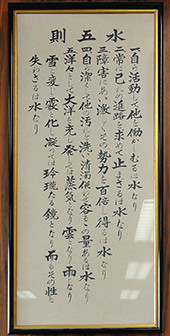 水五則
一自ら活動して他を働かしむるは水なり
二常に己れの進路を求めて止まざるは水なり
三障害に逢ひ激しくその勢力を百倍し得るは水なり
四自ら潔く他の汚れを洗ひ清濁併せ容るるの量あるは水なり
五洋々として大洋を充し発しては蒸気となり雲となり雨となり
雪と変じ霰と化し凝っては玲瓏たる鏡となり而もその性を
失わざるは水なり